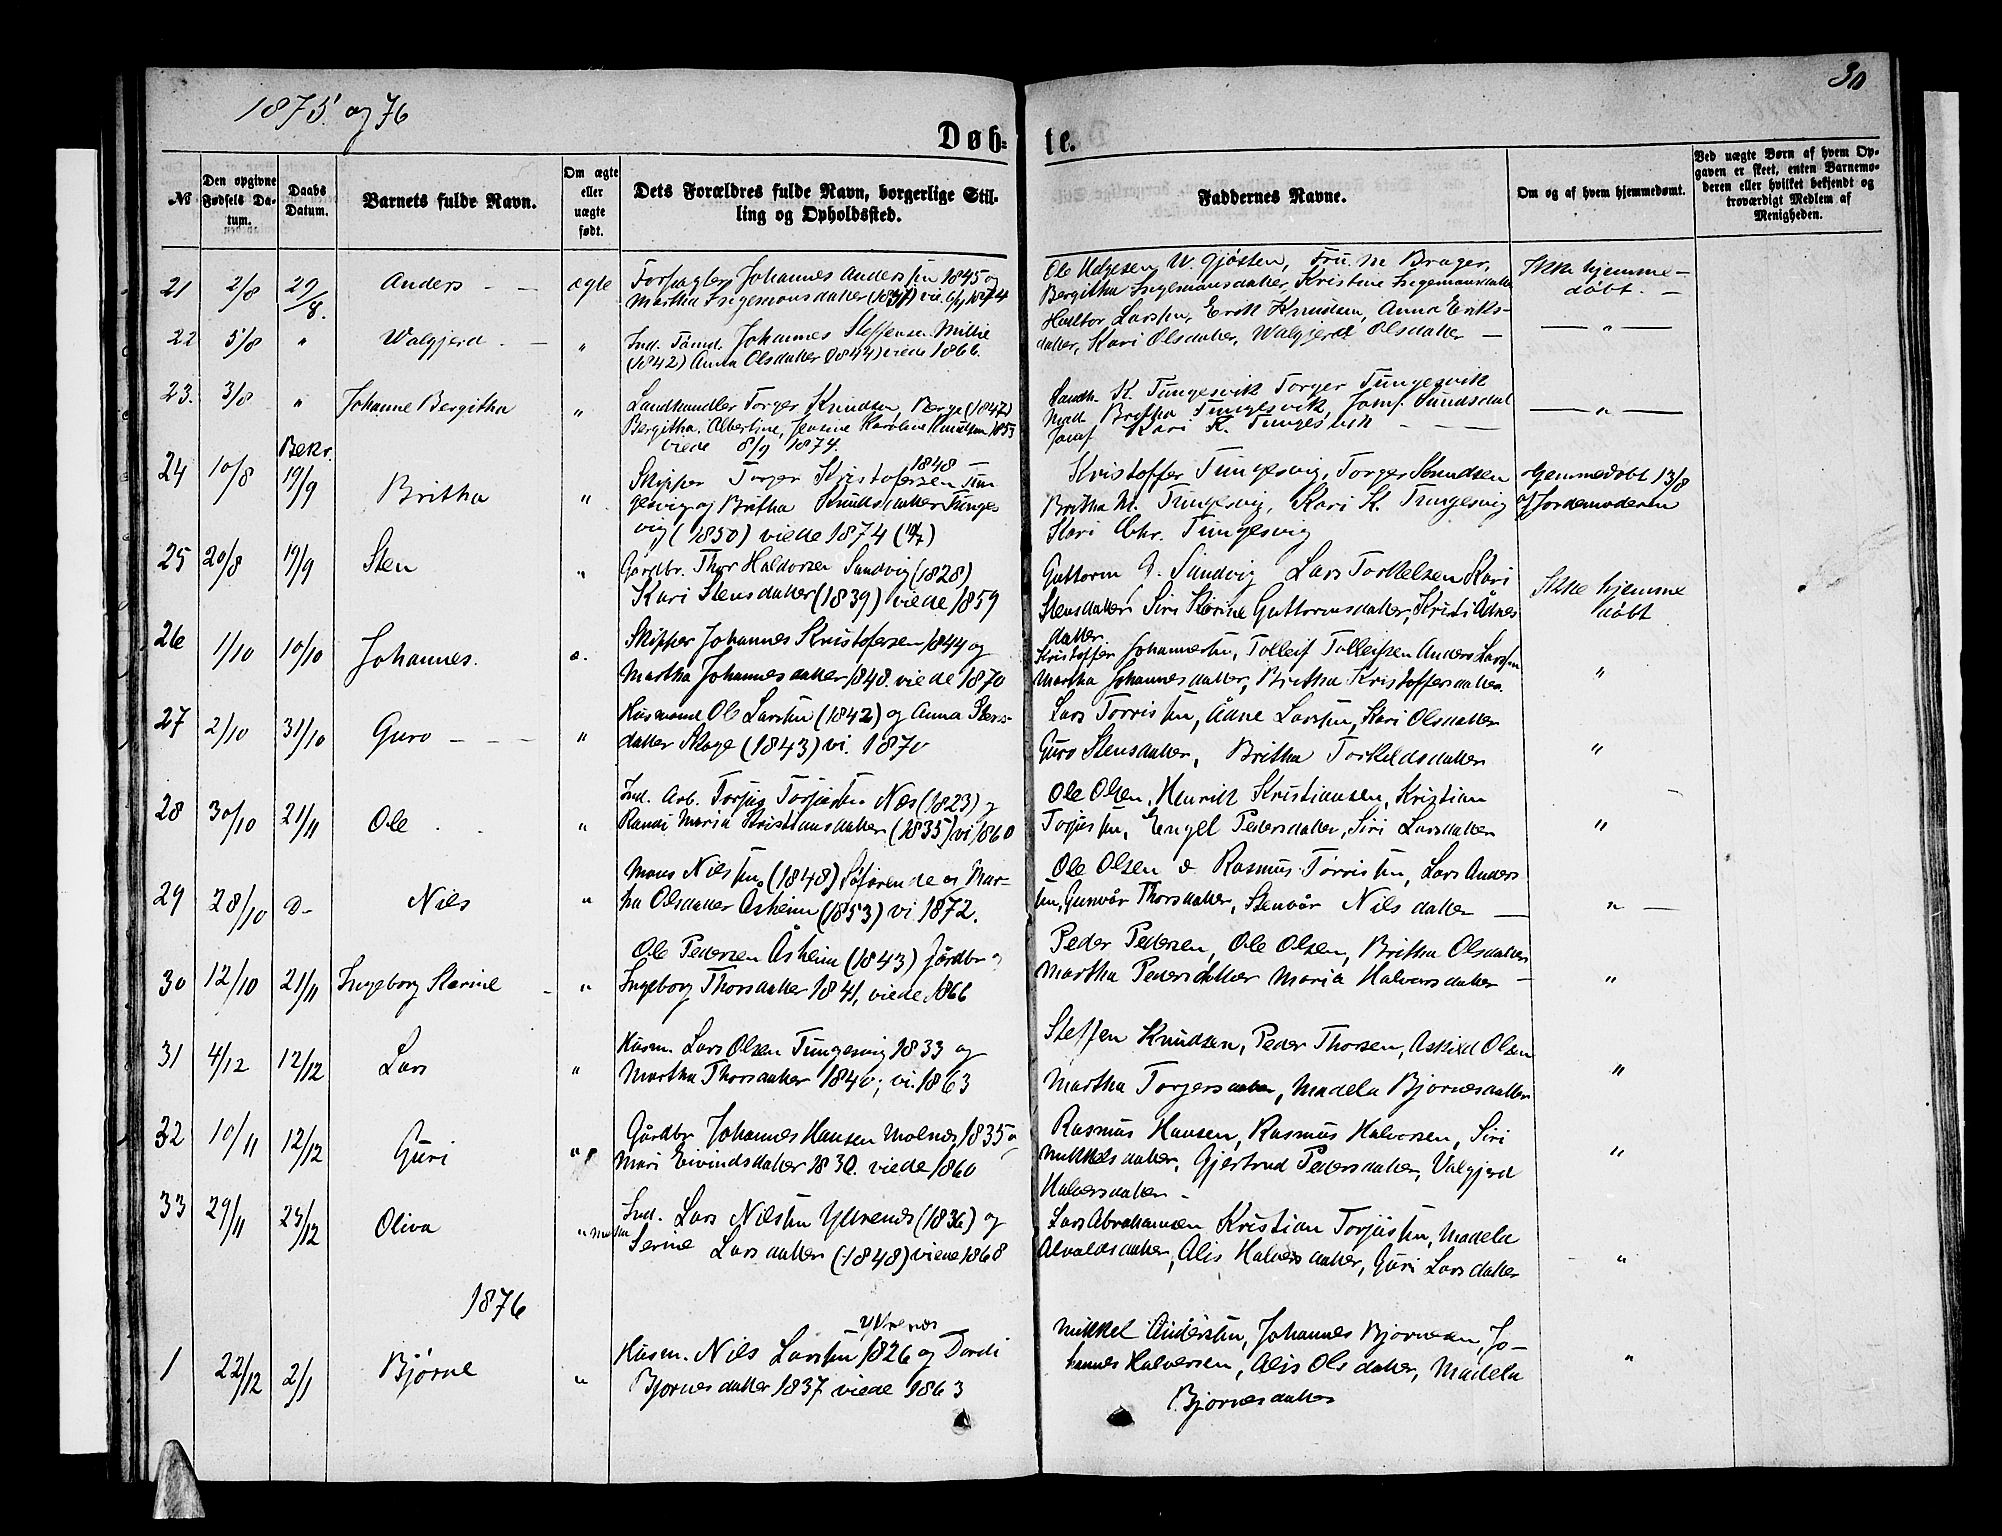 1875 og 76
30
Døb=
te.
№
Den opgivne Fødsels Datum.
Daabs Datum.
Barnets fulde Navn.
Om ægte eller uægte født.
Dets Forældres fulde Navn, borgerlige Stilling og Opholdssted.
Faddernes Navne.
Om og af hvem hjemmedømt.
Ved uægte Børn af hvem Opgaven er skeet, enten Barnemoderen eller hvilket bekjendt og troværdigt Medlem af Menigheden.
21 2/8 29/8. Anders - - ægte Forpagter Johannes Anderssen 1845 og
Martha Ingemonsdatter (1847) vie. 1874
Ole Helgesen, W. Gjøsten, Fru. M. Brager,
Bergitha Ingemonsdatter, Kristine Ingemonsdatter
Ikke hjemme-
døbt. -
22 5/8 " Walgjerd - " Ind. Tømd. Johannes Steffensen Millie
(1842) Anna Olsdatter (1844) viede 1866.
Larssen, Erik Knudsen, Anna Eriks-
datter, Kari Olsdatter, Walgjerd Olsdatter -
— " —
23. 3/8 " Johanne Bergitha " Landhandler Torger Knudsen, Berge (1847)
Bergitha Albertine, Jensine Karoline Knudsen 1853
viede 8/9 1874.
Landh. K. Tungesvik Torger Tungesvik
Mad Britha Tungesvik, Jomf. Sundsdal
Jomf Kari K. Tungesvik - - -
— " —
24 10/8 Bekr. 19/9 Britha " Skipper Torger Kristofersen 1848 - Tun
gesvig og Britha Knudsdatter Tunges
vig (1850) viede 1874
Kristoffer Tungesvig, Torger Knudsen
Britha M. Tungesvig, Kari K. Tungesvig
Kari Chr. Tungesvig
Hjemmedøbt 13/8
af Jordemoderen
25 20/8 19/9 Sten " Gardbr. Thor Haldorsen Sandvig (1828)
Kari Stensdatter (1839) viede 1859
Guttorm G. Sandvig Lars Torkelsen Kari
Stensdatter, Siri Sterine Guttormsdatter, Kristi Ådnes
datter
Ikke hjemme
døbt
26 1/10 10/10 Johannes. æ. Skipper Johannes Kristofersen 1844 og
Martha Johannesdatter 1848. viede 1870
Kristoffer Johannessen, Tolleif Tolleifsen Anders Larssen
Martha Johannesdatter, Britha Kristoffersdatter
"
27 2/10 31/10 Guro - - - " Husmand Ole Larssen (1842) og Anna Stens-
datter Skoge (1843) vi. 1870
Lars Torrissen, Ådne Larssen, Kari Olsdatter
Guro Stensdatter, Britha Torkildsdatter
"
28 30/10 21/11 Ole " Ind. Arb. Torjus Torjussen Næs (1823) og
Randi Maria Kristiansdatter (1835) vi 1860
Ole Olsen, Henrik Kristiansen, Kristian
Torjussen, Engel Pedersdatter, Siri Larsdatter
"
29 28/10 D- Nils " Mons Nilssen (1848) Søfarende og Mar-
tha Olsdatter Åsheim (1853) vi 1872.
Ole Olsen & Rasmus Torrissen, Lars Anders
sen, Gunvår Thorsdatter, Stenvår Nilsdatter —
"
30 12/10 21/11 Ingeborg Sterine - " Ole Pedersen Åsheim (1843) Jordbr og
Ingeborg Thorsdatter 1841, viede 1866
Peder Pedersen, Ole Olsen, Britha Olsdatter
Martha Pedersdatter Maria Halvorsdatter -
"
31 4/12 12/12 Lars " Husm. Lars Olsen Tungesvig 1833 og
Martha Thorsdatter 1840, vi. 1863
Steffen Knudsen, Peder Thorsen, Askild Olsen
Martha Torgersdatter, Madela Bjørnesdatter
"
32 10/11 12/12 Guri " Gårdbr Johannes Hansen Molnes, 1835 og
Mari Eivindsdatter 1830. viede 1860
Rasmus Hansen, Rasmus Halvorsen, Siri
Mikkelsdatter, Gjertrud Pedersdatter, Valgjerd
Halvorsdatter -
"
33 29/11 23/12 Oliva " Ind. Lars Nilssen Yttrenes (1836) og
Martha Serine Larsdatter (1848) viede 1868
Lars Abrahamsen Kristian Torjussen, Madela
Alvaldsdatter, Alis Halvorsdatter, Guri Larsdatter
"
1876
1 22/12 2/1 Bjørne " Husm. Nils Larssen Yttrenæs 1826 og Dordi
Bjørnesdatter 1837 viede 1863
Mikkel Anderssen, Johannes Bjørnesen, Jo-
hannes Halvorsen, Alis Olsdatter, Madela
Bjørnesdatter
"